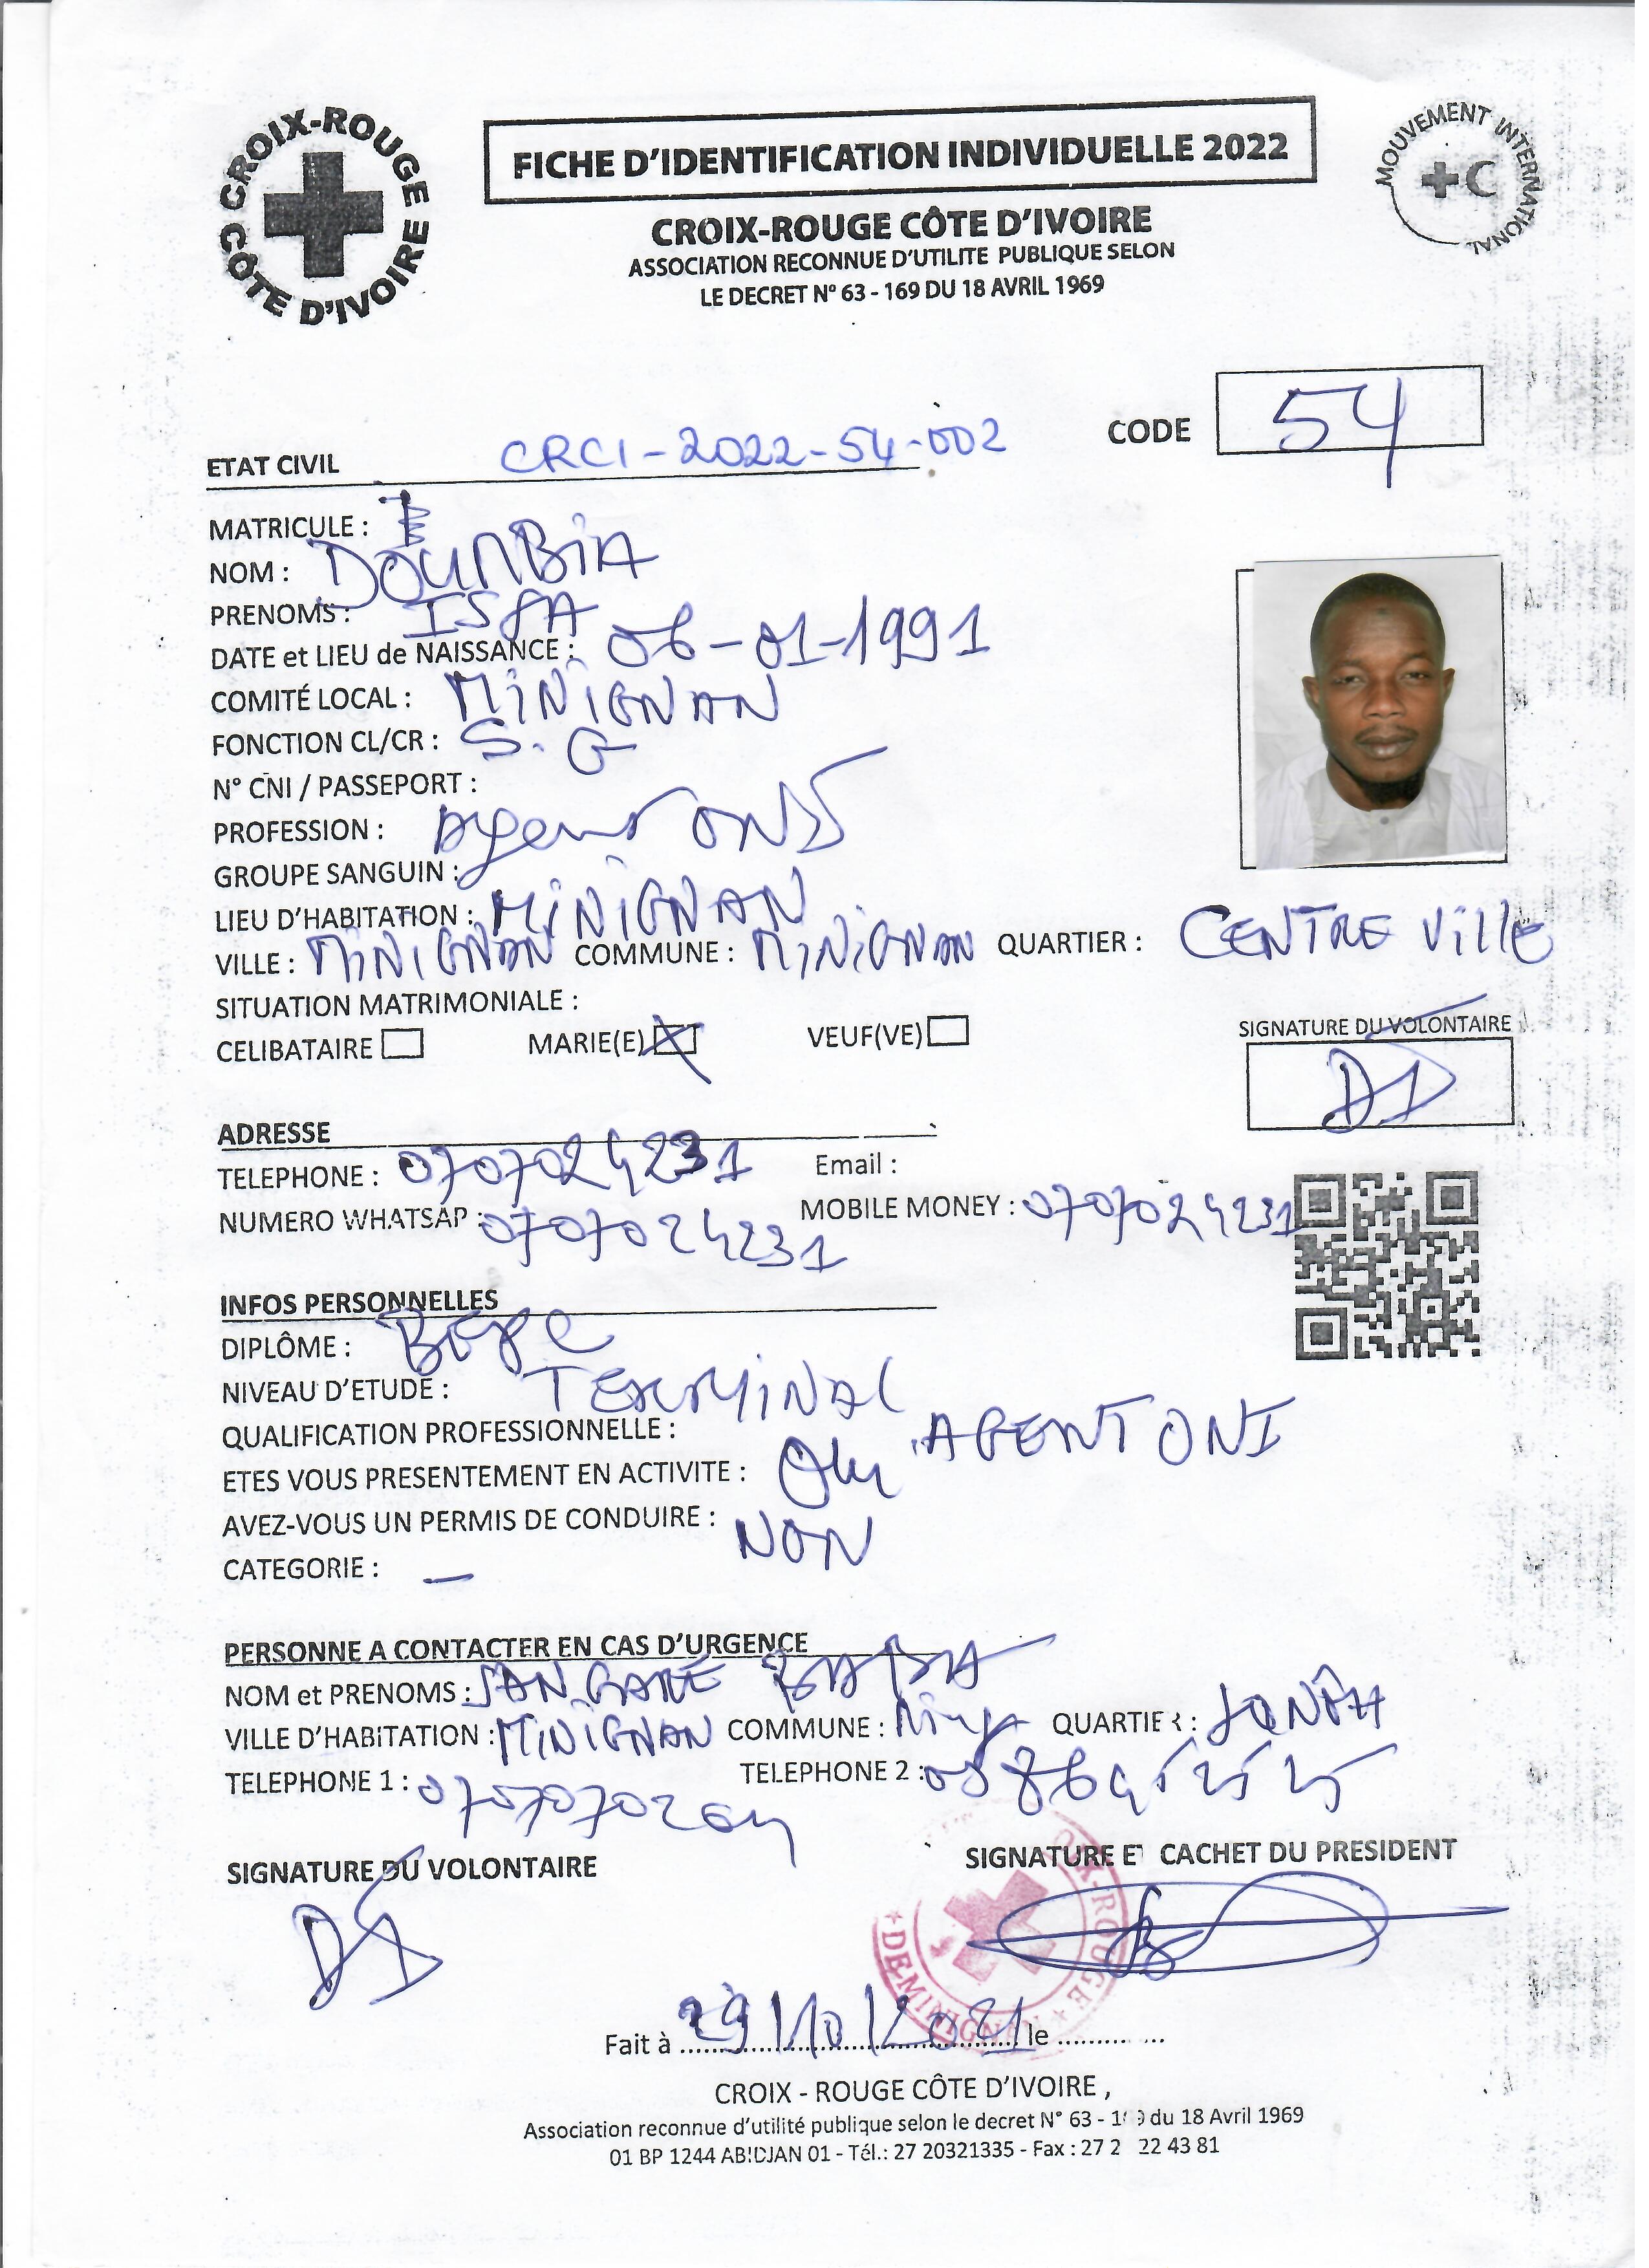 CROIX-ROUGE CÔTE D'IVOIRE
FICHE D'IDENTIFICATION INDIVIDUELLE 2022
MOUVEMENT INTERNATIONAL
CROIX-ROUGE CÔTE D'IVOIRE
ASSOCIATION RECONNUE D'UTILITE PUBLIQUE SELON
LE DECRET N° 63 - 169 DU 18 AVRIL 1969
CODE 54
ETAT CIVIL CRCI-2022-54-002
MATRICULE :
NOM : DOUMBIA
PRENOMS : ISSA
DATE et LIEU de NAISSANCE : 06-01-1991
COMITÉ LOCAL : MINIGNAN
FONCTION CL/CR : S.G
N° CNI / PASSEPORT :
PROFESSION : Agent
GROUPE SANGUIN :
LIEU D'HABITATION : MINIGNAN
VILLE : MINIGNAN COMMUNE : MINIGNAN QUARTIER : CENTRE VillE
SITUATION MATRIMONIALE :
CELIBATAIRE MARIE(E) VEUF(VE)
SIGNATURE DU VOLONTAIRE
ADRESSE
TELEPHONE : 0707024231 Email :
NUMERO WHATSAP : 0707024231 MOBILE MONEY : 0707024231
INFOS PERSONNELLES
DIPLÔME : BEPC
NIVEAU D'ETUDE : TERMINAL
QUALIFICATION PROFESSIONNELLE : AGENT ONI
ETES VOUS PRESENTEMENT EN ACTIVITE : Oui
AVEZ-VOUS UN PERMIS DE CONDUIRE : NON
CATEGORIE : –
PERSONNE A CONTACTER EN CAS D'URGENCE
NOM et PRENOMS : SANGARÉ
VILLE D'HABITATION : MINIGNAN COMMUNE : QUARTIER :
TELEPHONE 1 : TELEPHONE 2 :
SIGNATURE DU VOLONTAIRE
SIGNATURE ET CACHET DU PRESIDENT
Fait à 29/10/2021 le
CROIX - ROUGE CÔTE D'IVOIRE ,
Association reconnue d'utilité publique selon le decret N° 63 - 1 9 du 18 Avril 1969
01 BP 1244 ABIDJAN 01 - Tél.: 27 20321335 - Fax : 27 2 22 43 81